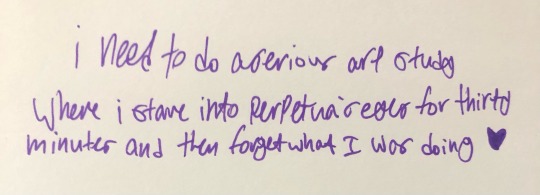 i need to do a serious art study
Where i stare into Perpetua's eyes for thirty
minutes and then forget what I was doing ♥